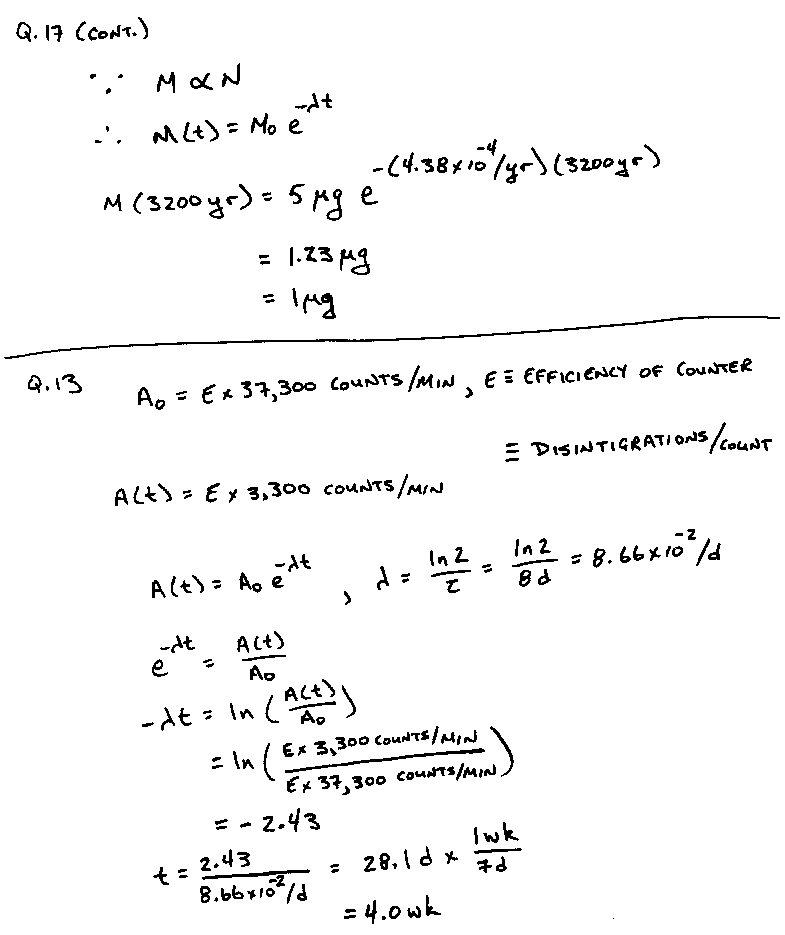 Q.17 (CONT.)
∵ M ∝ N
∴ M(t) = M₀ e^(-λt)
M(3200yr) = 5 μg e^(-(4.38×10⁻⁴/yr)(3200yr))
= 1.23 μg
= 1μg
Q.13 A₀ = E × 37,300 COUNTS/MIN, E ≡ EFFICIENCY OF COUNTER
≡ DISINTIGRATIONS/COUNT
A(t) = E × 3,300 COUNTS/MIN
A(t) = A₀ e^(-λt), λ = ln 2/τ = ln 2/8 d = 8.66×10⁻²/d
e^(-λt) = A(t)/A₀
-λt = ln (A(t)/A₀)
= ln (E× 3,300 COUNTS/MIN / E× 37,300 COUNTS/MIN)
= -2.43
t = 2.43/8.66×10⁻²/d = 28.1 d × 1wk/7d
= 4.0 wk